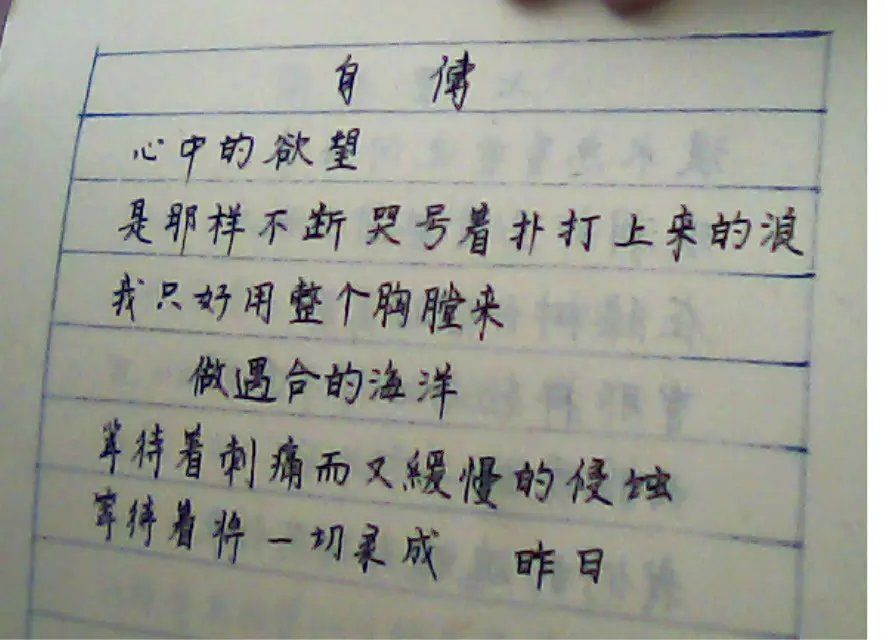 自 傳
心中的欲望
是那样不断哭号着扑打上来的浪
我只好用整个胸膛来
做遇合的海洋
等待着刺痛而又緩慢的侵蚀
等待着将一切柔成 昨日